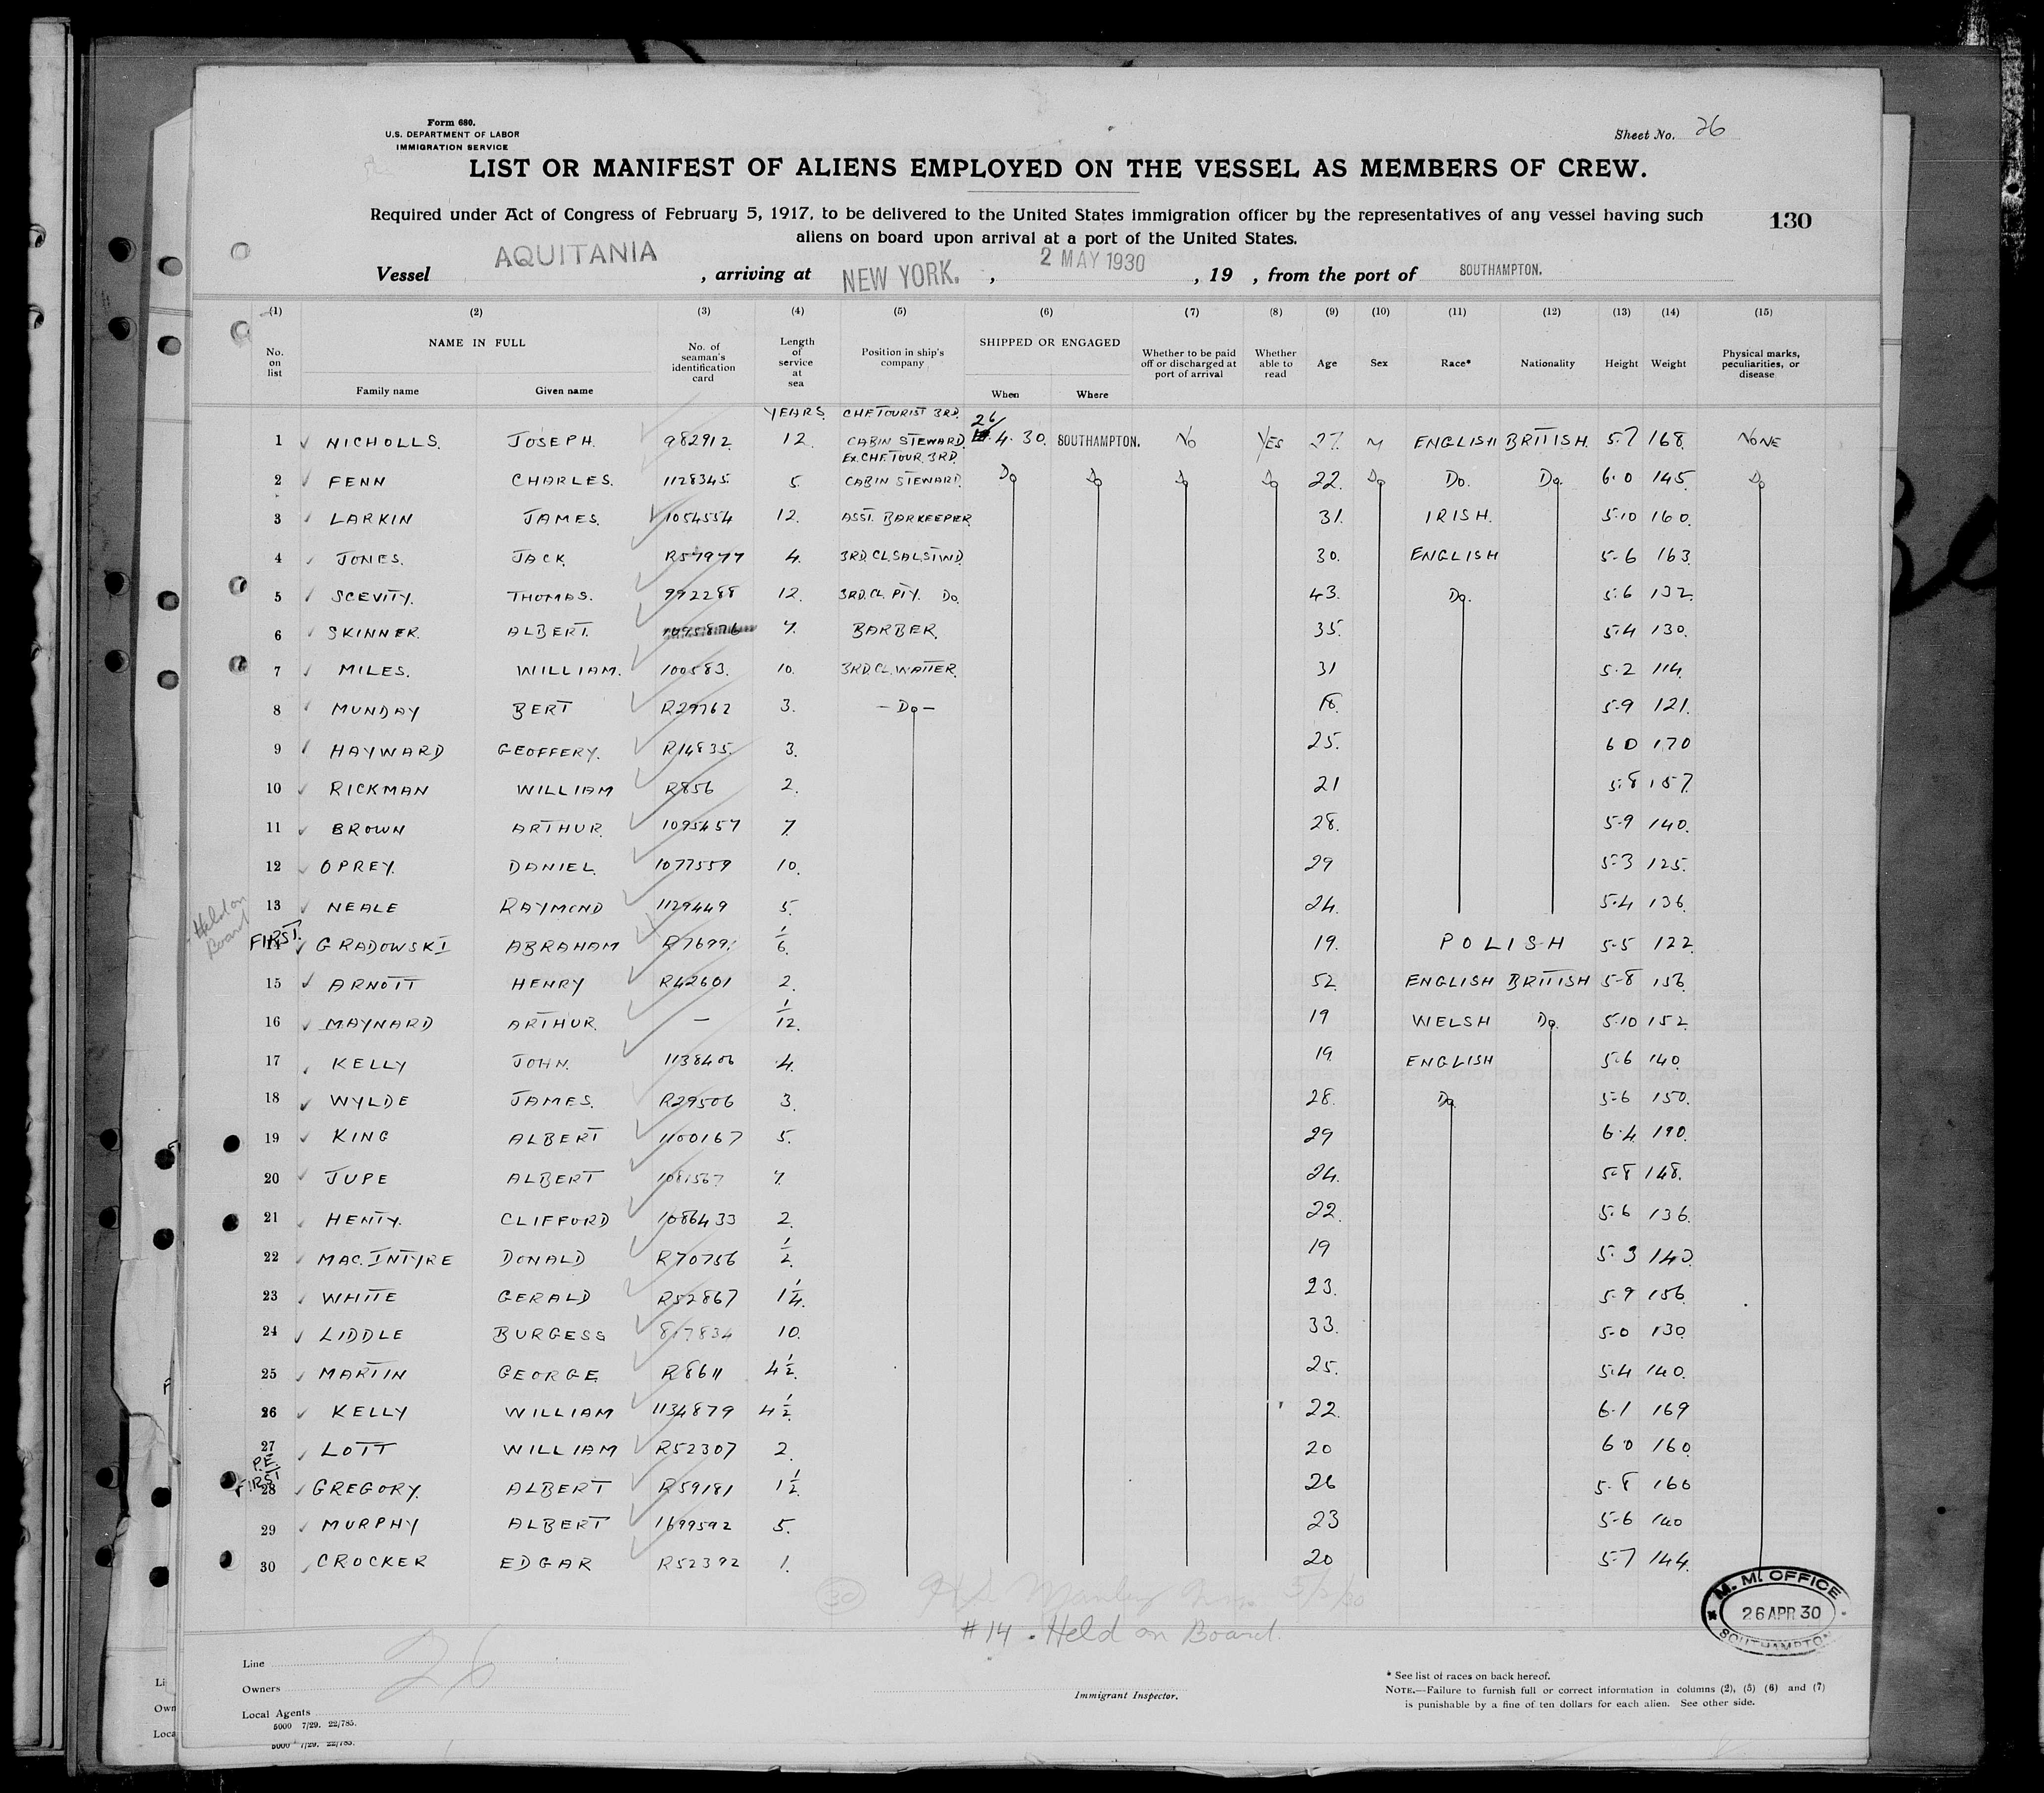 Form 680.
U.S. DEPARTMENT OF LABOR
IMMIGRATION SERVICE
Sheet No. 26
LIST OR MANIFEST OF ALIENS EMPLOYED ON THE VESSEL AS MEMBERS OF CREW.
Required under Act of Congress of February 5, 1917, to be delivered to the United States immigration officer by the representatives of any vessel having such
aliens on board upon arrival at a port of the United States.
130
Vessel AQUITANIA, arriving at NEW YORK., 2 MAY 1930, 19 , from the port of SOUTHAMPTON.
(1) (2) (3) (4) (5) (6) (7) (8) (9) (10) (11) (12) (13) (14) (15)
No. on list NAME IN FULL Family name Given name No. of seaman's identification card Length of service at sea Position in ship's company SHIPPED OR ENGAGED When Where Whether to be paid off or discharged at port of arrival Whether able to read Age Sex Race* Nationality Height Weight Physical marks, peculiarities, or disease
YEARS. CHF. TOURIST 3RD.
1 NICHOLLS. JOSEPH. 982912 12. CABIN STEWARD. 26/4.30. SOUTHAMPTON. No YES 27. M ENGLISH BRITISH. 5.7 168. NONE
EX. CHF. TOUR. 3RD.
2 FENN CHARLES. 1128345. 5. CABIN STEWARD. Do Do Do Do 22. Do Do. Do. 6.0 145. Do
3 LARKIN JAMES. 1054554 12. ASST. BARKEEPER 31. IRISH. 5.10 160.
4 JONES. JACK. R57977 4. 3RD. CL. SAL. STWD. 30. ENGLISH 5-6 163.
5 SCEVITY. THOMAS. 992288 12. 3RD. CL. PTY. Do. 43. Do. 5.6 132.
6 SKINNER. ALBERT. 7. BARBER. 35. 5.4 130.
7 MILES. WILLIAM. 100583. 10. 3RD. CL. WAITER. 31 5.2 114.
8 MUNDAY BERT R29762 3. -Do- 18. 5.9 121.
9 HAYWARD GEOFFERY. R14835. 3. 25. 6 0 170
10 RICKMAN WILLIAM R856 2. 21 5.8 157.
11 BROWN ARTHUR. 1095457 7. 28. 5.9 140.
12 OPREY. DANIEL. 1077559 10. 29 5.3 125.
13 NEALE RAYMOND 1129449 5. 24. 5.4 136.
Held on Board
FIRST.
14 GRADOWSKI ABRAHAM R7699 1/6. 19. POLISH 5-5 122
15 ARNOTT HENRY R42601 2. 52 ENGLISH BRITISH 5-8 156.
16 MAYNARD ARTHUR. — 1/12. 19 WELSH Do. 5.10 152.
17 KELLY JOHN. 1138406 4. 19. ENGLISH 5.6 140.
18 WYLDE JAMES. R29506 3. 28. Do. 5-6 150.
19 KING ALBERT 1100167 5. 29 6.4 190.
20 JUPE ALBERT 1081567 7. 24. 5-8 148.
21 HENTY. CLIFFORD 1086433 2. 22. 5.6 136.
22 MAC. INTYRE DONALD R70756 1/2. 19 5.3 140.
23 WHITE GERALD R52867 1 1/4. 23. 5.9 156.
24 LIDDLE BURGESS 817834 10. 33. 5-0 130.
25 MARTIN GEORGE R8611 4 1/2. 25. 5.4 140.
26 KELLY WILLIAM 1134879 4 1/2. 22. 6.1 169
27 LOTT WILLIAM R52307 2. 20 6 0 160.
P.E. FIRST
28 GREGORY. ALBERT R59181 1 1/2. 26 5.8 160
29 MURPHY ALBERT 1699592 5. 23 5-6 140
30 CROCKER EDGAR R52392 1. 20 5-7 144.
30
#14. Held on Board.
M.M. OFFICE
26 APR 30
SOUTHAMPTON
26
Line
Owners
Local Agents
5000 7/29. 22/785.
Immigrant Inspector.
* See list of races on back hereof.
NOTE.—Failure to furnish full or correct information in columns (2), (5) (6) and (7)
is punishable by a fine of ten dollars for each alien. See other side.
5000 7/29. 22/785.